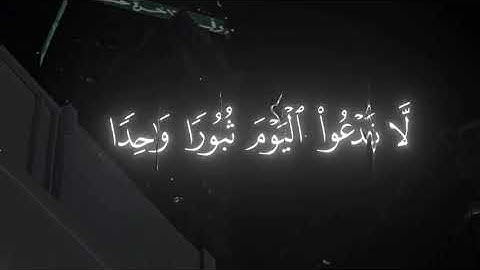 لَّا تَدْعُوا۟ ٱلْيَوْمَ ثُبُورًا وَٰحِدًا